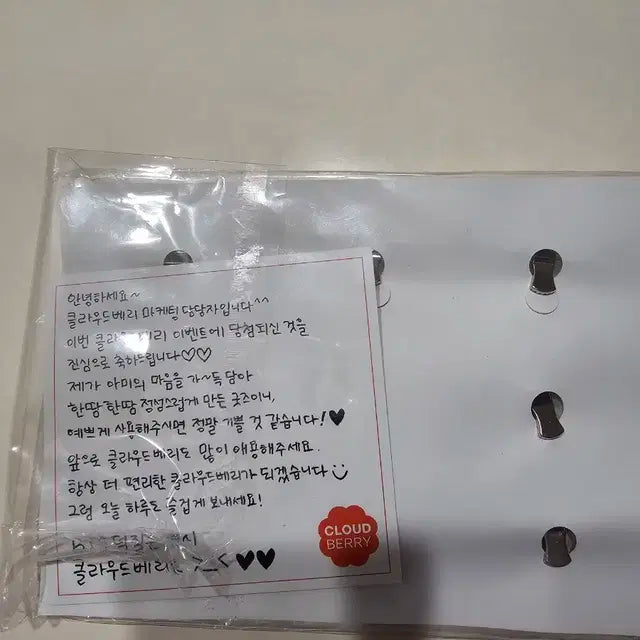 안녕하세요~
클라우드베리 마케팅 담당자입니다^^
이번 클라우드베리 이벤트에 당첨되신 것을
진심으로 축하드립니다♡♡
제가 아미의 마음을 가~득 담아
한땀 한땀 정성스럽게 만든 굿즈이니,
예쁘게 사용해주시면 정말 기쁠 것 같습니다!♥
앞으로 클라우드베리도 많이 애용해주세요.
항상 더 편리한 클라우드베리가 되겠습니다
그럼 오늘 하루도 즐겁게 보내세요!
클라우드베리 >_< ♥♥
CLOUD
BERRY